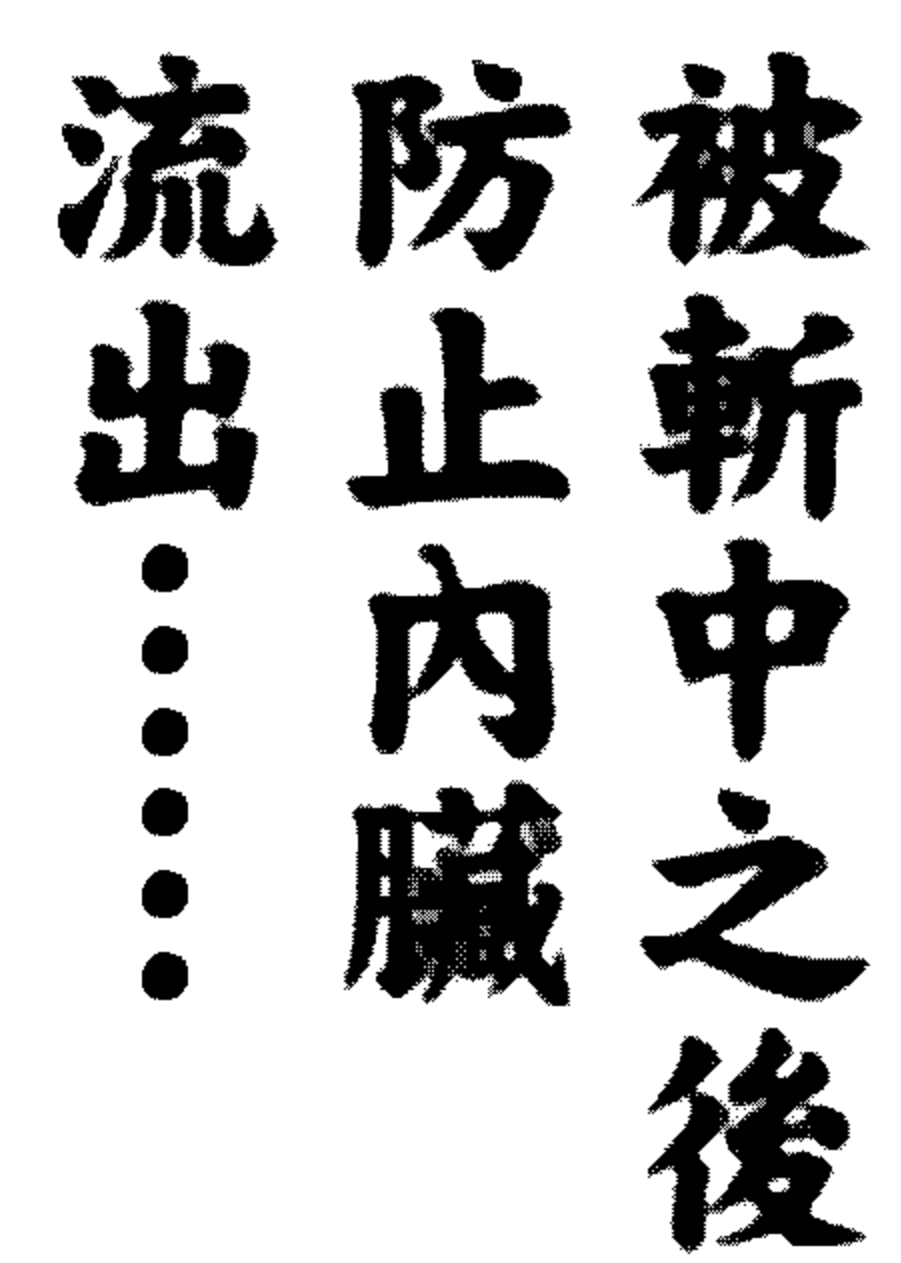 被斬中之後
防止內臟
流出……